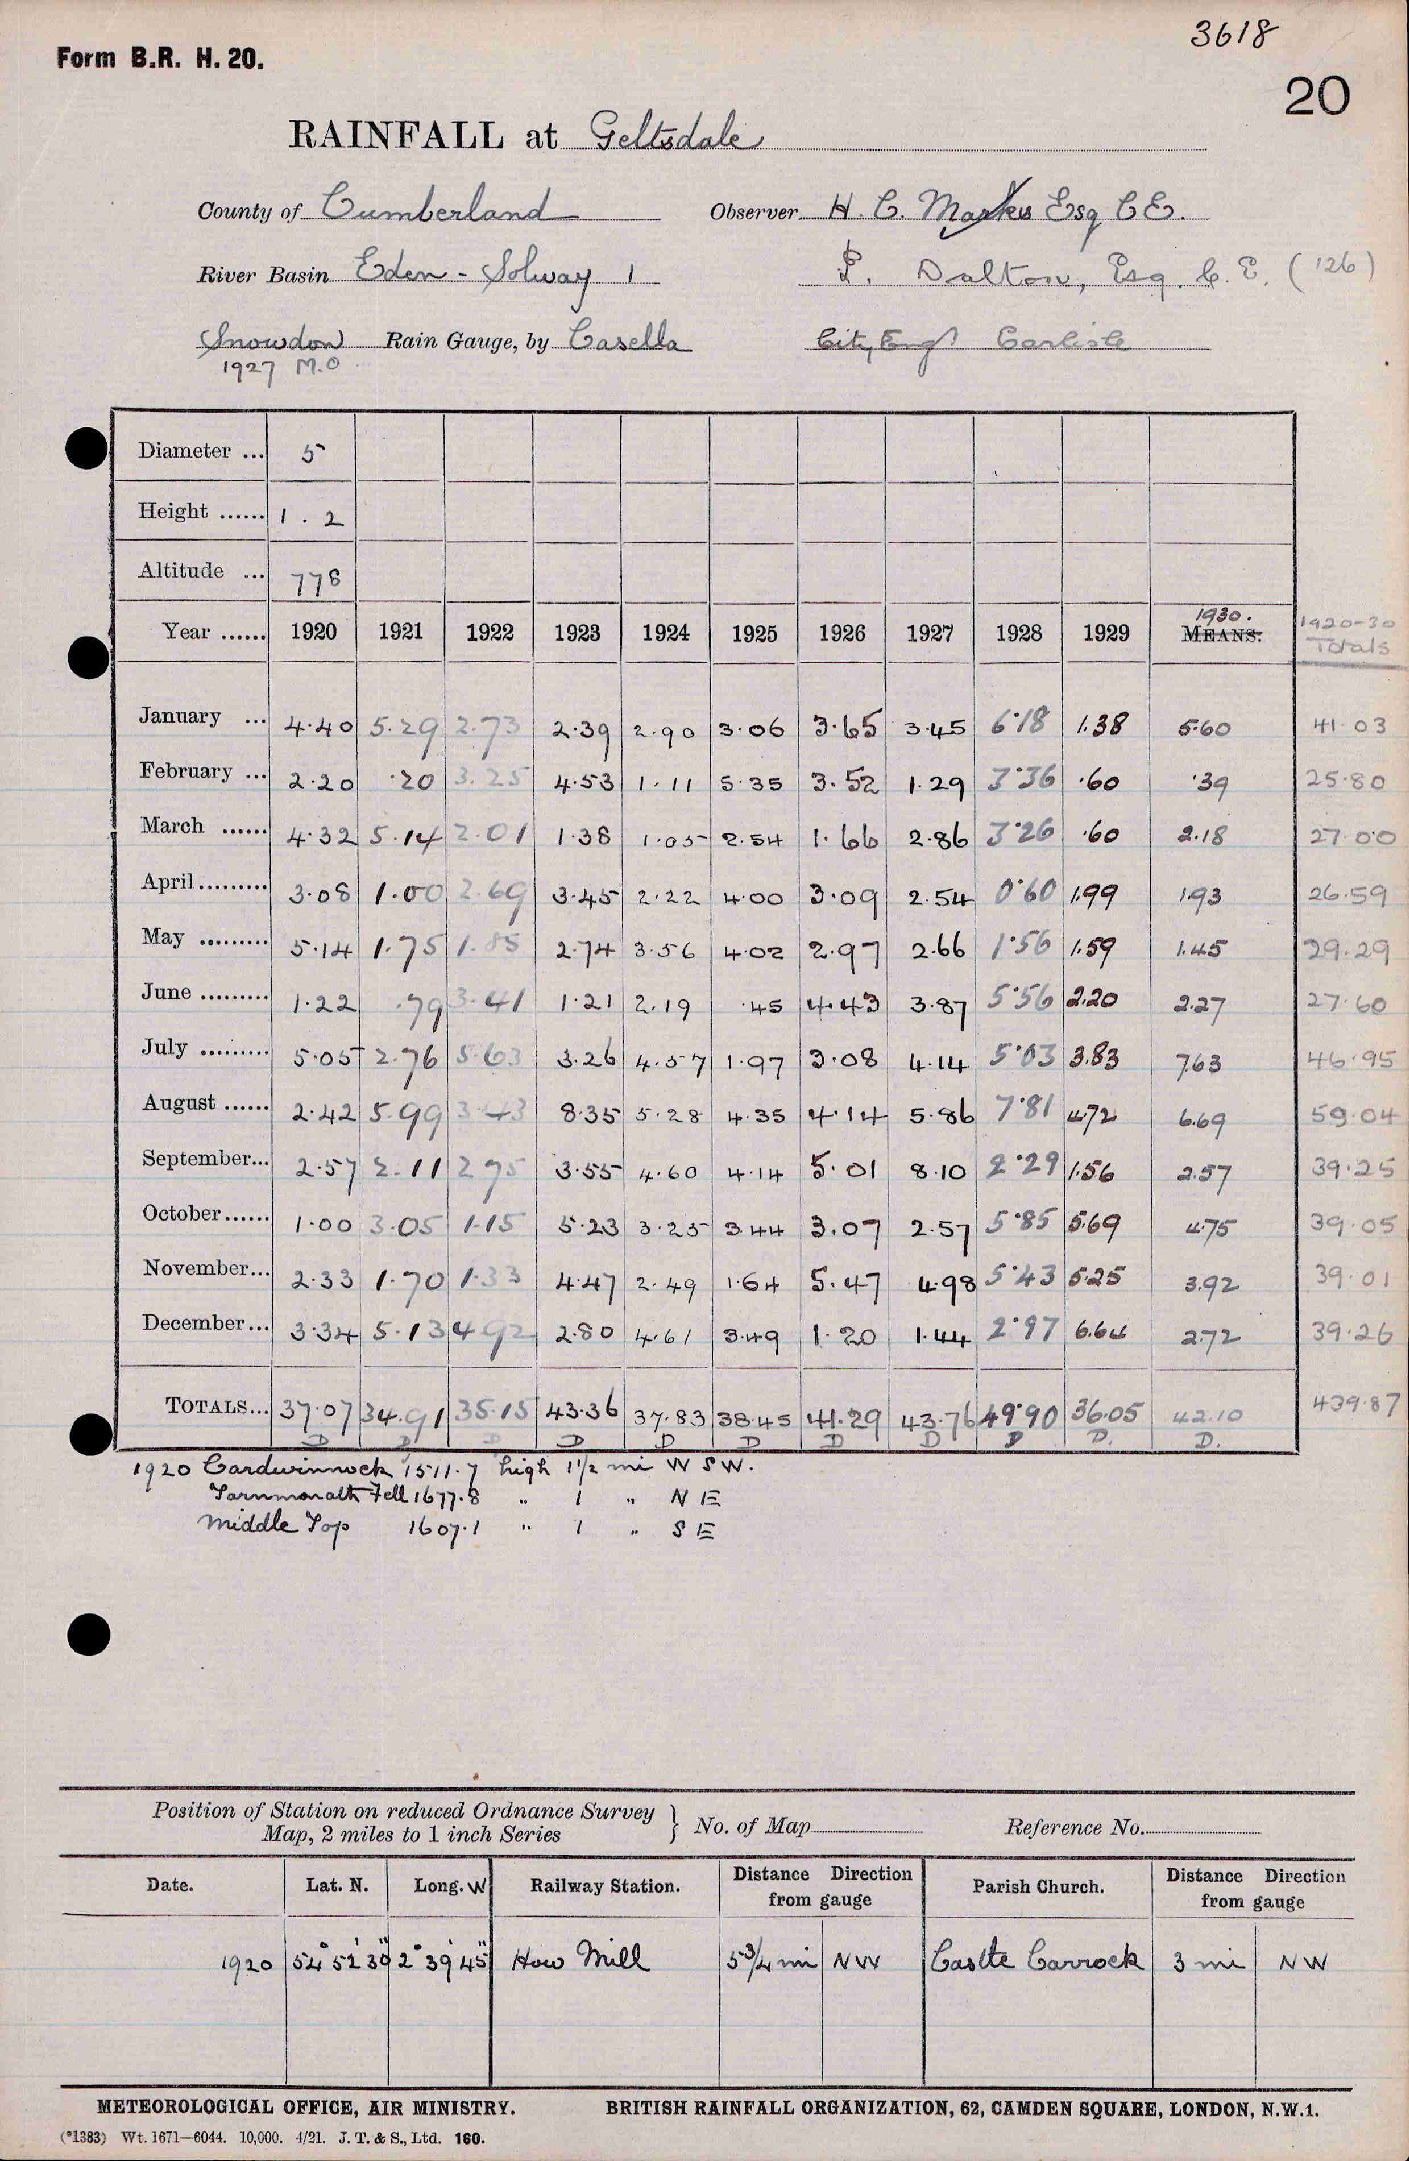 3618
Form B.R. H. 20.
20
RAINFALL at Geltsdale
County of Cumberland Observer H. C. Marks Esq C E.
River Basin Eden - Solway 1 P. Dalton, Esq. C. E. (126)
Snowdon Rain Gauge, by Casella City Engr Carlisle
1927 M.O.
Diameter ... 5
Height ...... 1.2
Altitude ... 778
Year ...... 1920 1921 1922 1923 1924 1925 1926 1927 1928 1929 1930. MEANS. 1920-30 Totals
January ... 4.40 5.29 2.73 2.39 2.90 3.06 3.65 3.45 6.18 1.38 5.60 41.03
February ... 2.20 .20 3.25 4.53 1.11 5.35 3.52 1.29 3.36 .60 .39 25.80
March ...... 4.32 5.14 2.01 1.38 1.05 2.54 1.66 2.86 3.26 .60 2.18 27.00
April ......... 3.08 1.00 2.69 3.45 2.22 4.00 3.09 2.54 0.60 1.99 1.93 26.59
May ......... 5.14 1.75 1.85 2.74 3.56 4.02 2.97 2.66 1.56 1.59 1.45 29.29
June ......... 1.22 .79 3.41 1.21 2.19 .45 4.43 3.87 5.56 2.20 2.27 27.60
July ......... 5.05 2.76 5.63 3.26 4.57 1.97 3.08 4.14 5.03 3.83 7.63 46.95
August ...... 2.42 5.99 3.43 8.35 5.28 4.35 4.14 5.86 7.81 4.72 6.69 59.04
September... 2.57 2.11 2.75 3.55 4.60 4.14 5.01 8.10 2.29 1.56 2.57 39.25
October...... 1.00 3.05 1.15 5.23 3.25 3.44 3.07 2.57 5.85 5.69 4.75 39.05
November... 2.33 1.70 1.33 4.47 2.49 1.64 5.47 4.98 5.43 5.25 3.92 39.01
December... 3.34 5.13 4.92 2.80 4.61 3.49 1.20 1.44 2.97 6.64 2.72 39.26
TOTALS... 37.07 34.91 35.15 43.36 37.83 38.45 41.29 43.76 49.90 36.05 42.10 439.87
D D D D D D D D D D. D.
1920 Cardwinnock 1511.7 high 1 1/2 mi W S W.
Tarnmonath Fell 1677.8 " 1 " N E
Middle Top 1607.1 " 1 " S E
Position of Station on reduced Ordnance Survey
Map, 2 miles to 1 inch Series } No. of Map Reference No.
Date. Lat. N. Long. W Railway Station. Distance Direction from gauge Parish Church. Distance Direction from gauge
1920 54° 52' 30" 2° 39' 45" How Mill 5 3/4 mi NW Caslte Carrock 3 mi NW
METEOROLOGICAL OFFICE, AIR MINISTRY. BRITISH RAINFALL ORGANIZATION, 62, CAMDEN SQUARE, LONDON, N.W.1.
(*1383) Wt. 1671—6044. 10,000. 4/21. J. T. & S., Ltd. 160.